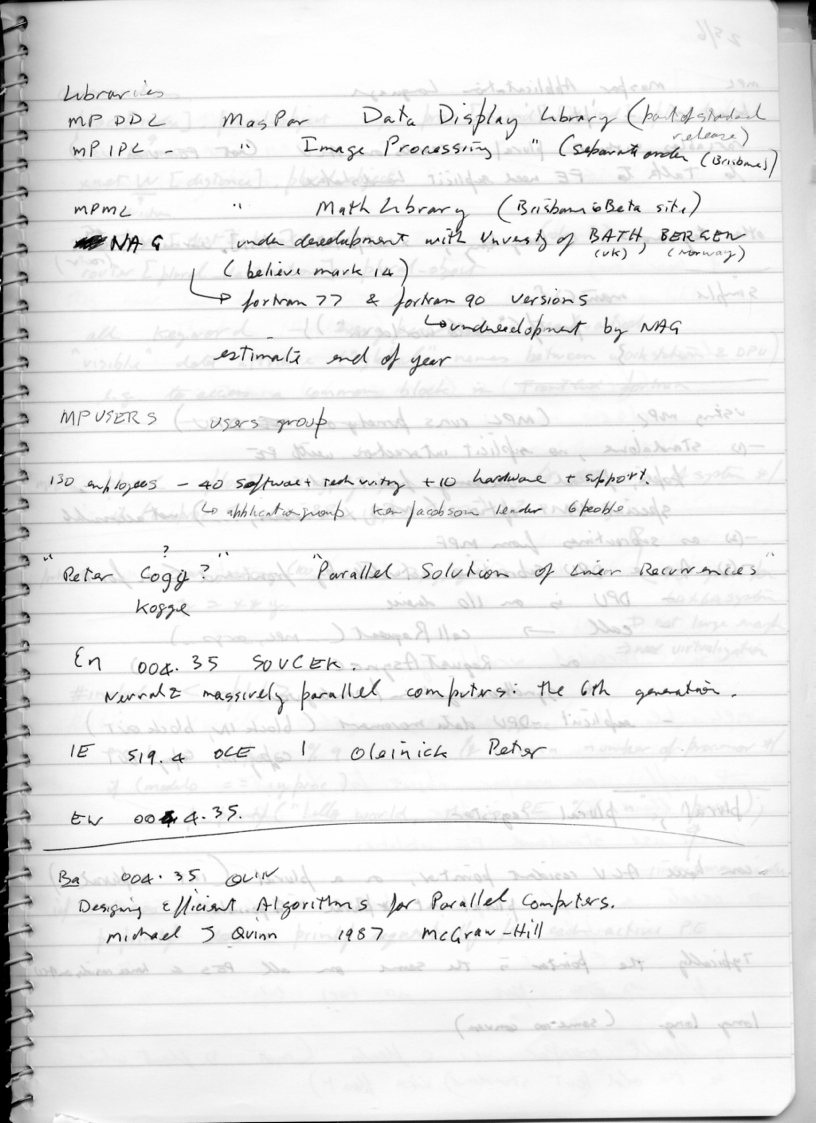 Libraries
MPDDL MasPar Data Display Library (part of standard release)
MPIPL - " Image Processing " (separate order (Brisbanes)
MPML " Math Library (Brisbane is Beta site)
NAG under development with University of BATH (UK), BERGEN (Norway)
(believe mark 14)
fortran 77 & fortran 90 versions
under development by NAG
estimate end of year
MPUSERS users group
130 employees - 40 software + +10 hardware + support.
application group Ken Jacobson leader 6 people
"Peter Cogy?" ? "Parallel Solution of Linear Recurrences"
Kogge
En 004.35 SOUCEK.
Neural & massively parallel computers: the 6th generation.
IE 519.4 OLE 1 Oleinick Peter
EN 004.35.
Ba 004.35 QUIN
Designing Efficient Algorithms for Parallel Computers.
Michael J Quinn 1987 McGraw-Hill